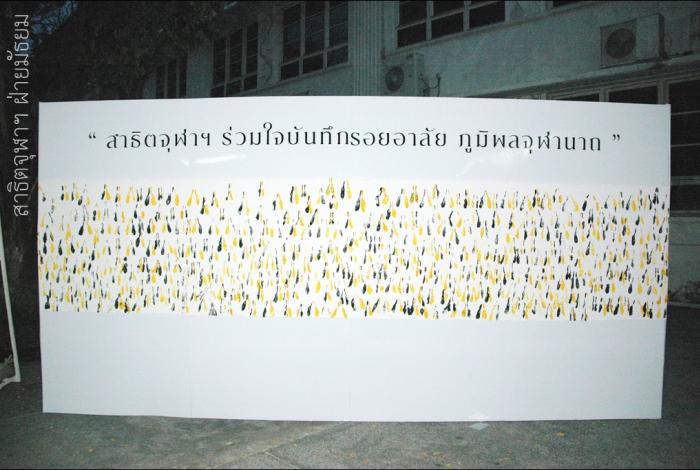 สาธิตจุฬาฯ ฝ่ายมัธยม
“ สาธิตจุฬาฯ ร่วมใจบันทึกรอยอาลัย ภูมิพลจุฬานาถ ”